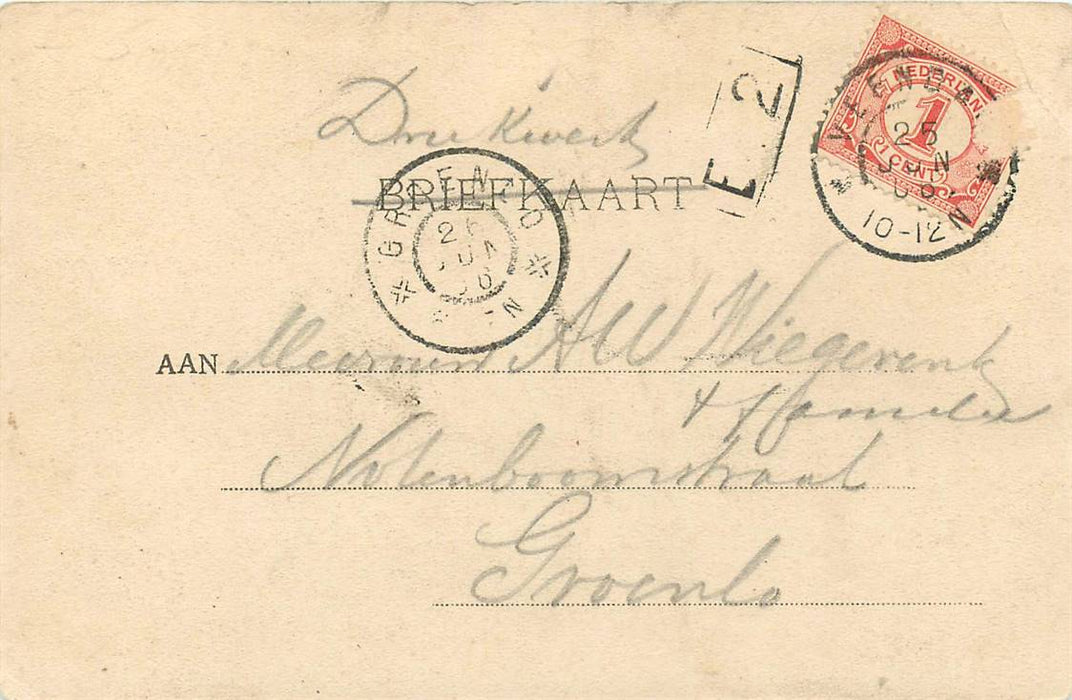 Drukwerk
BRIEFKAART
E 2
NEDERLAND
1
CENT
VEENDA
25
JUN
06
10-12 N
GROENLO
26
JUN
06
N
AAN Mevrouw A W Wiegerink
+ familie
Notenboomstraat
Groenlo